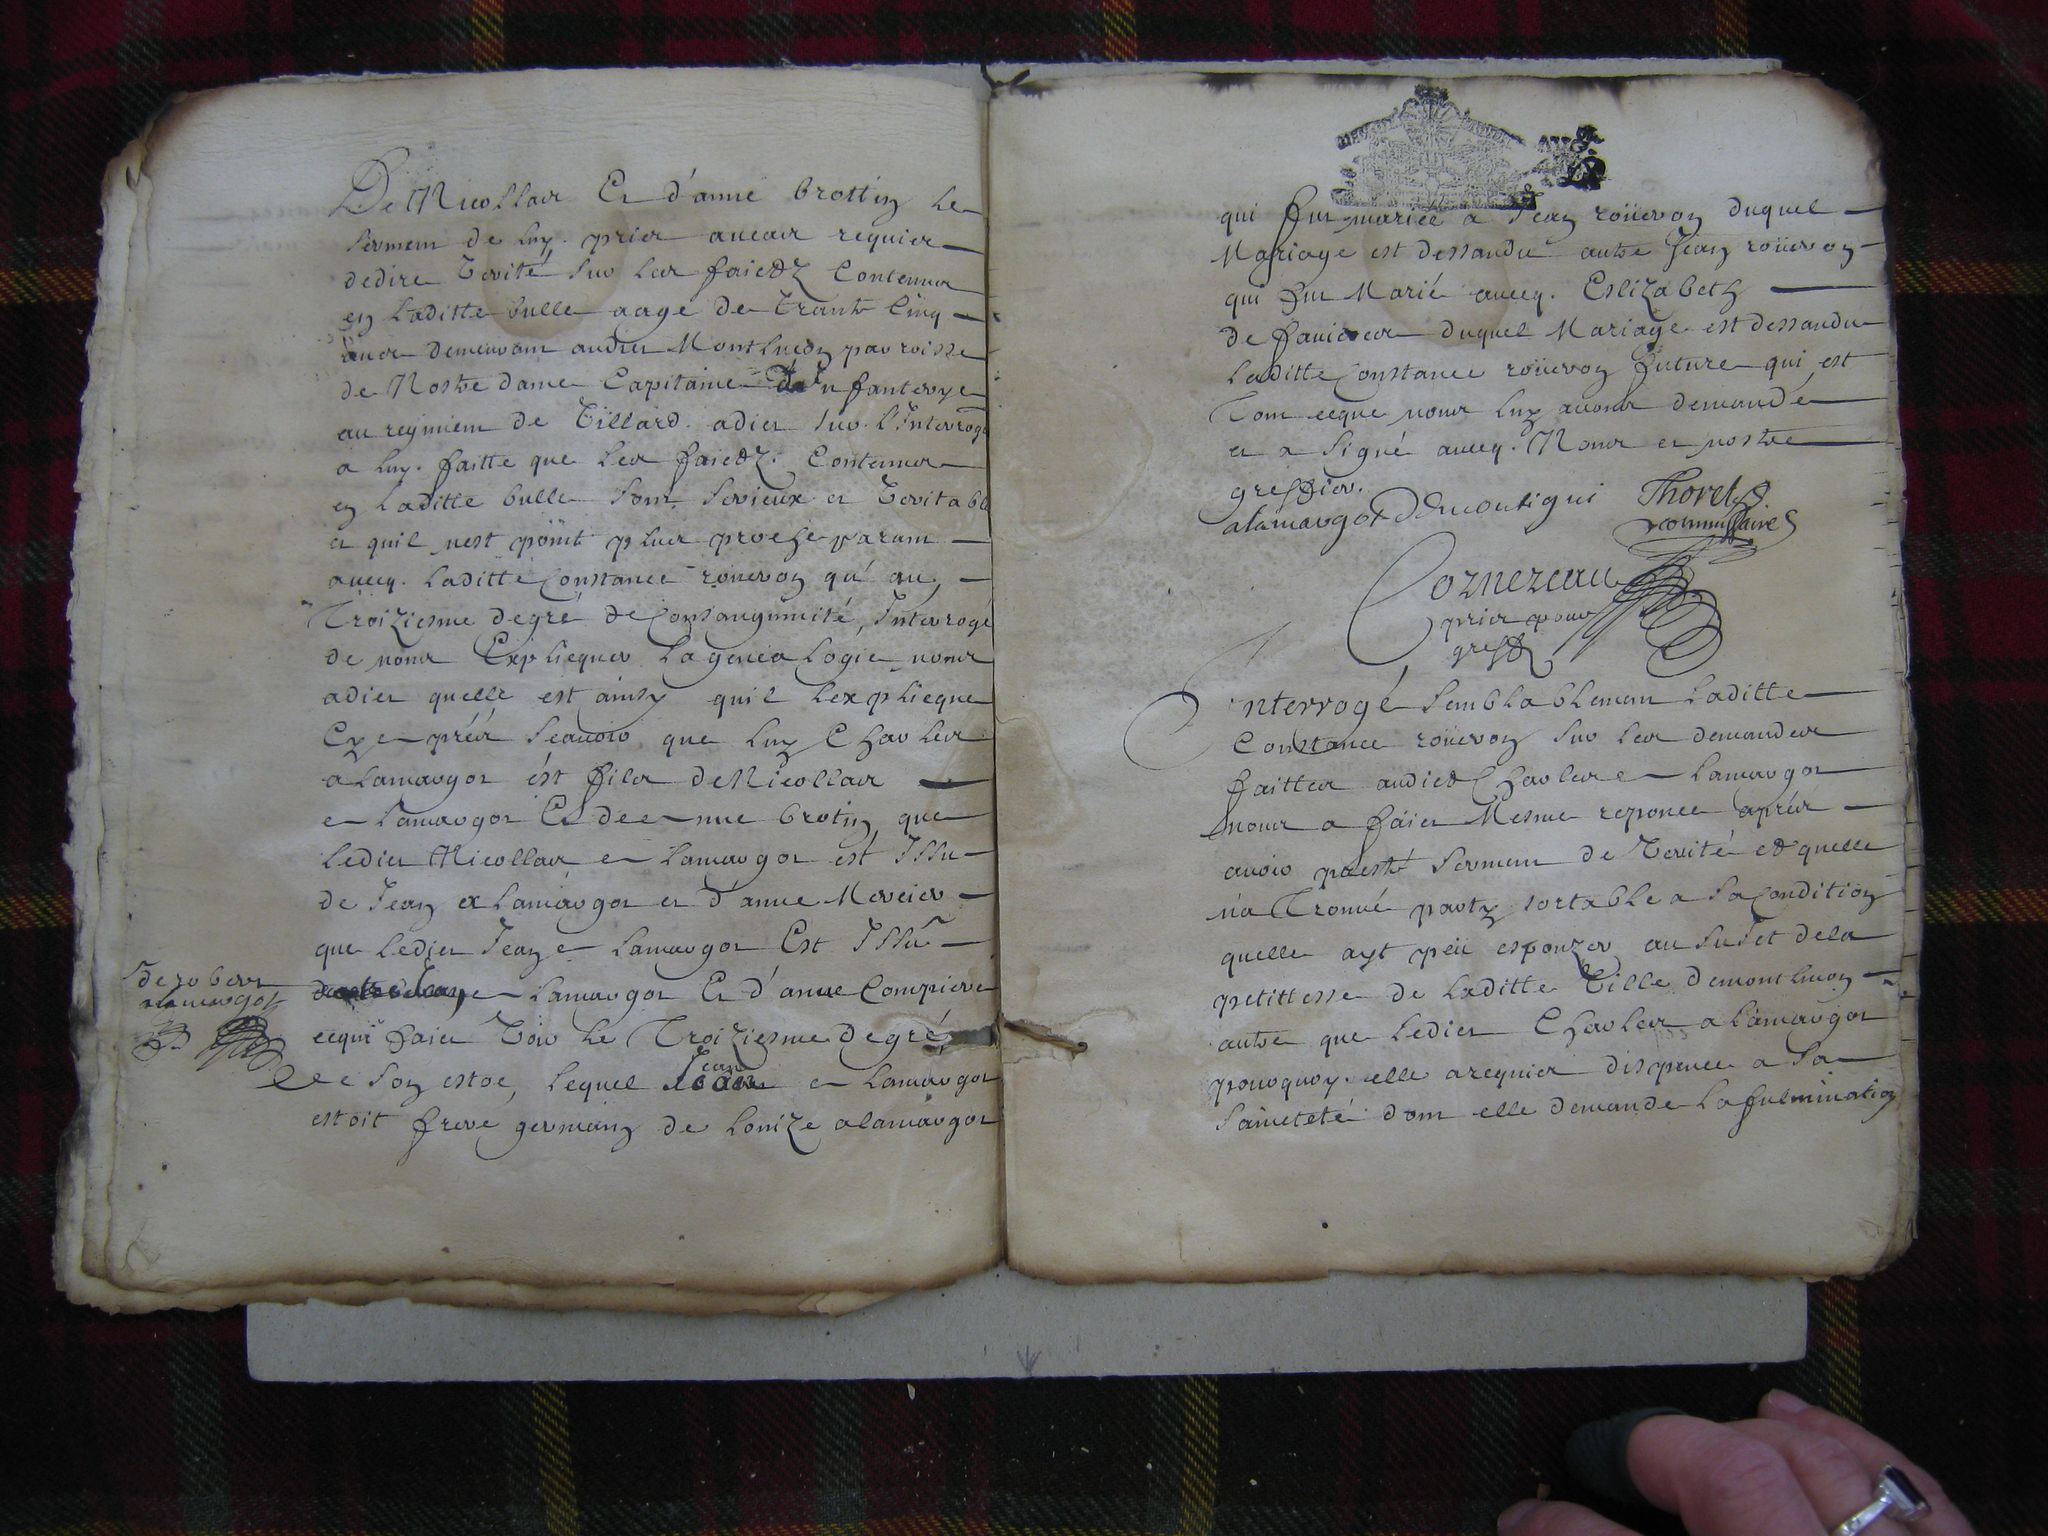 De Nicollas Et d'anne brottin le
serment de luy pris aucas requier
dedire verité sur les faictz Contenus
en laditte bulle aagé de trante Cinq
ans demeurant audict Montluçon parroisse
de Nostre dame Capitaine d'Infanterye
au regiment de Villard a dict sur l'Interrogé
a luy faitte que les faictz Contenus
en laditte bulle sont serieux et veritable
et quil nest point plus proche parant
avecq laditte Constance roüeron qu'au
Troiziesme degré de Consanguinité, Interrogé
de nous Expliequer la genealogie nous
a dict quelle est ainsy quil lexplieque
Cy apres scavoir que luy Charles
alamargot ést fils de Nicollas
alamargot Et de anne brotin que
ledict Nicollas alamargot est Issu
de Jean alamargot et d'anne Mercier
que ledict Jean alamargot Est Issu
alamargot Et d'anne Compiere
de robert
alamargot
ecqui faict voir le Troiziesme degré
de son estoc, lequel Jean alamargot
estoit frere germain de louize alamargot
qui fut mariée a Jean roüeron duquel
Mariage est dessandu autre Jean roüeron
qui fut Marié avecq Eslizabeth
de duquel Mariage est dessandu
laditte Constance roüeron future qui est
Tout ceque nous luy avons demandé
et a signé avecq Nous et nostre
greffier.
alamargot Demontigni Thorel
commissaire
Cornereau
pris pour
greff
Interrogé semblablement laditte
Constance roüeron sur les demandes
faittes audict Charles alamargot
nous a faict Mesme reponce aprés
avoir presté serment de verité et quelle
na Trouvé party sortable a sa Condition
quelle ayt peü espouzer au sujet dela
petittesse de laditte Ville demontluçon
autre que ledict Charles alamargot
pourquoy elle a requier dispence a sa
saincteté dont elle demande la fulmination